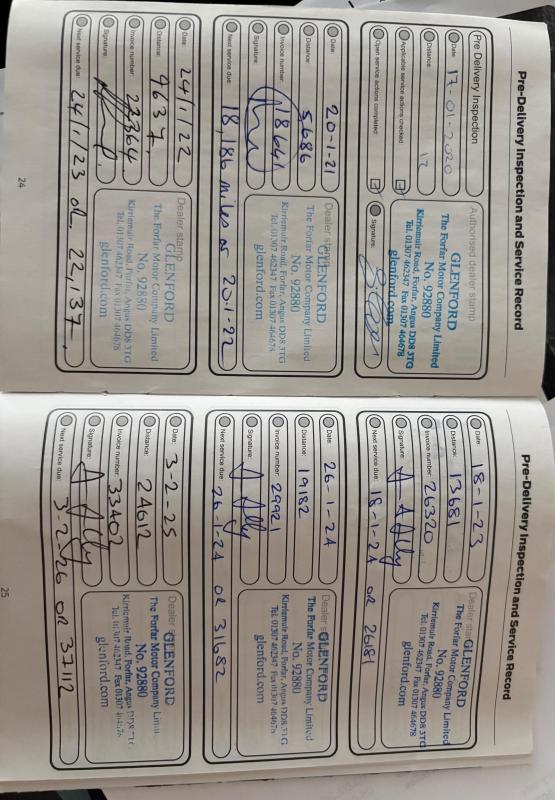 Pre-Delivery Inspection and Service Record
Pre Delivery Inspection
Date: 17-01-2020
Distance: 12
Applicable service actions checked:
Open service actions completed:
Authorised dealer stamp
GLENFORD
The Forfar Motor Company Limited
No. 92880
Kirriemuir Road, Forfar, Angus DD8 3TG
Tel. 01307 462347 Fax 01307 464678
glenford.com
Signature:
Date: 20-1-21
Distance: 5,686
Invoice number: 18641
Signature:
Next service due: 18,186 miles or 20.1-22
Dealer stamp
GLENFORD
The Forfar Motor Company Limited
No. 92880
Kirriemuir Road, Forfar, Angus DD8 3TG
Tel. 01307 462347 Fax 01307 464678
glenford.com
Date: 24/1/22
Distance: 9637.
Invoice number: 22364
Signature:
Next service due: 24/1/23 or 22,137.
Dealer stamp
GLENFORD
The Forfar Motor Company Limited
No. 92880
Kirriemuir Road, Forfar, Angus DD8 3TG
Tel. 01307 462347 Fax 01307 464678
glenford.com
24
Pre-Delivery Inspection and Service Record
Date: 18-1-23
Distance: 13681
Invoice number: 26320
Signature: A Ally
Next service due: 18-1-24 OR 26181
Dealer stamp
GLENFORD
The Forfar Motor Company Limited
No. 92880
Kirriemuir Road, Forfar, Angus DD8 3TG
Tel. 01307 462347 Fax 01307 464678
glenford.com
Date: 26-1-24
Distance: 19182
Invoice number: 29921
Signature: A Ally
Next service due: 26-1-24 OR 31682
Dealer s
GLENFORD
The Forfar Motor Company Limited
No. 92880
Kirriemuir Road, Forfar, Angus DD8 3TG
Tel. 01307 462347 Fax 01307 464678
glenford.com
Date: 3-2-25
Distance: 24612
Invoice number: 33402
Signature: A Ally
Next service due: 3-2-26 OR 37112
Dealer
GLENFORD
The Forfar Motor Company Limi
No. 92880
Kirriemuir Road, Forfar, Angus DD8
Tel. 01307 462347 Fax 01307 464678
glenford.com
25